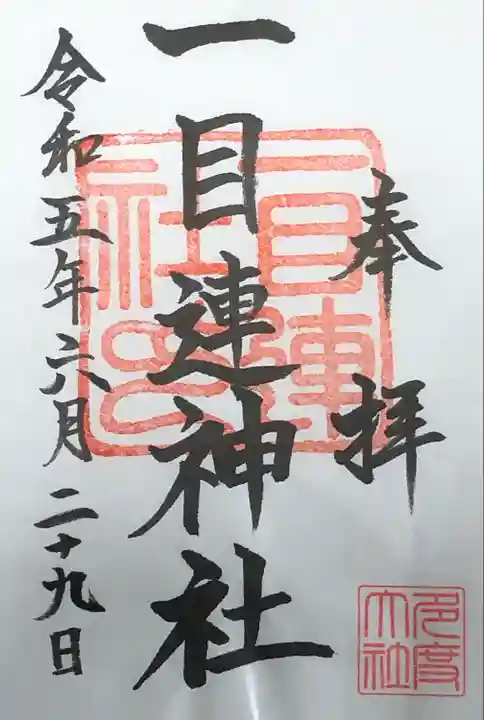 奉拝
一目連神社
令和五年六月二十九日
多度
大社